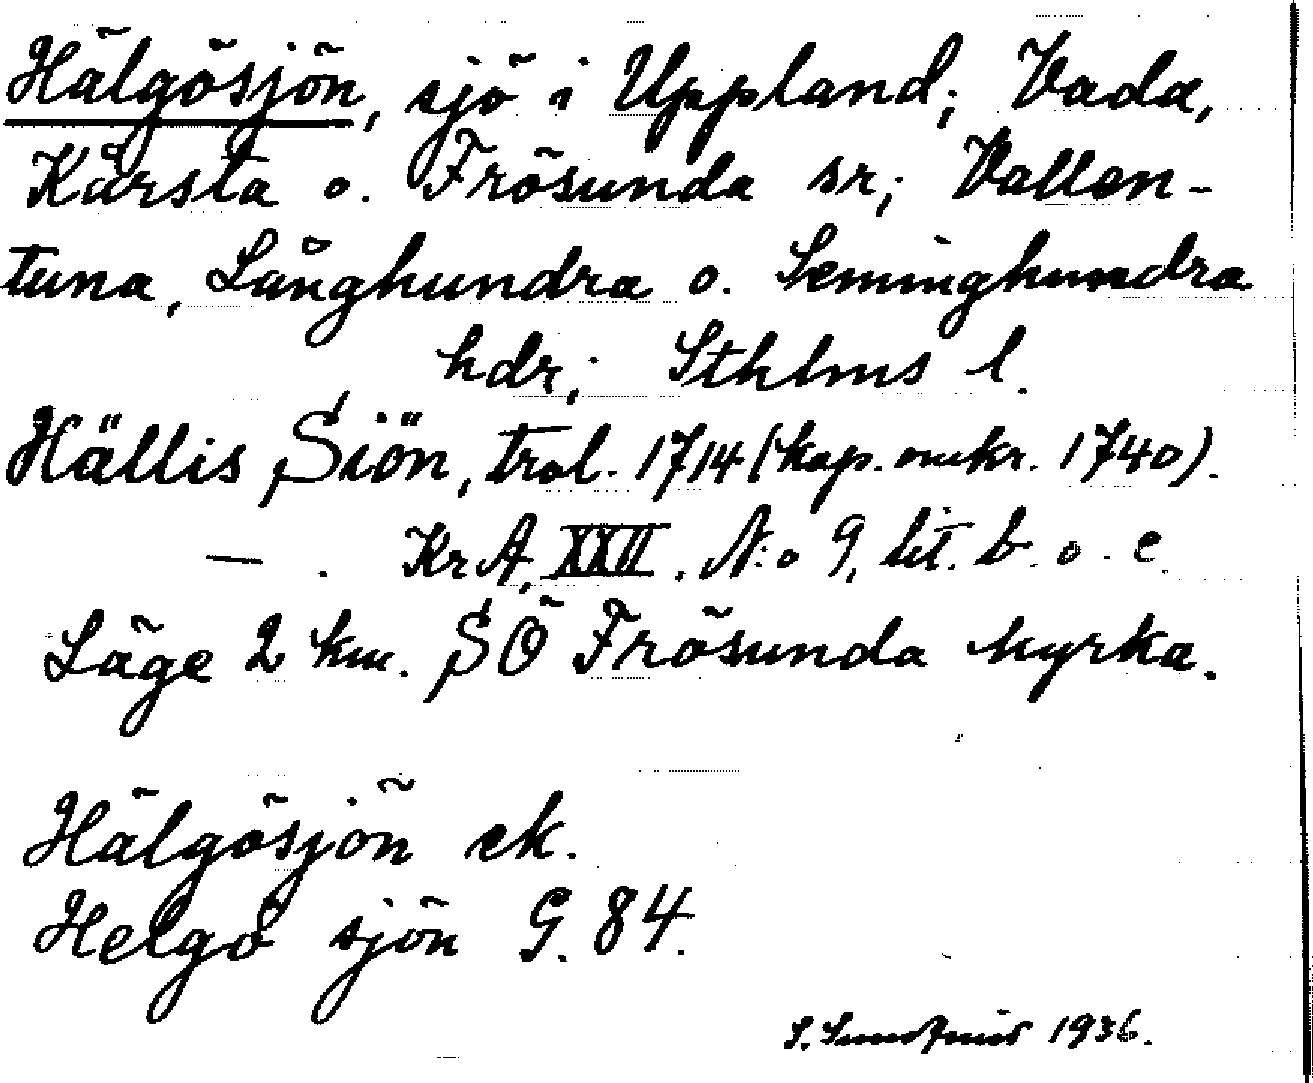 Hälgösjön, sjö i Uppland; Vada,
Kårsta o. Frösunda sr; Vallen-
tuna, Långhundra o. Seminghundra
hdr; Sthlms l.
Hällis Siön, trol. 1714 (kap. omkr. 1740).
— . KrA, XXII. N:o 9, lit. b. o. c
Läge 2 km. SÖ Frösunda kyrka.
Hälgösjön ek.
Helgö sjön G. 84.
S. 1936.